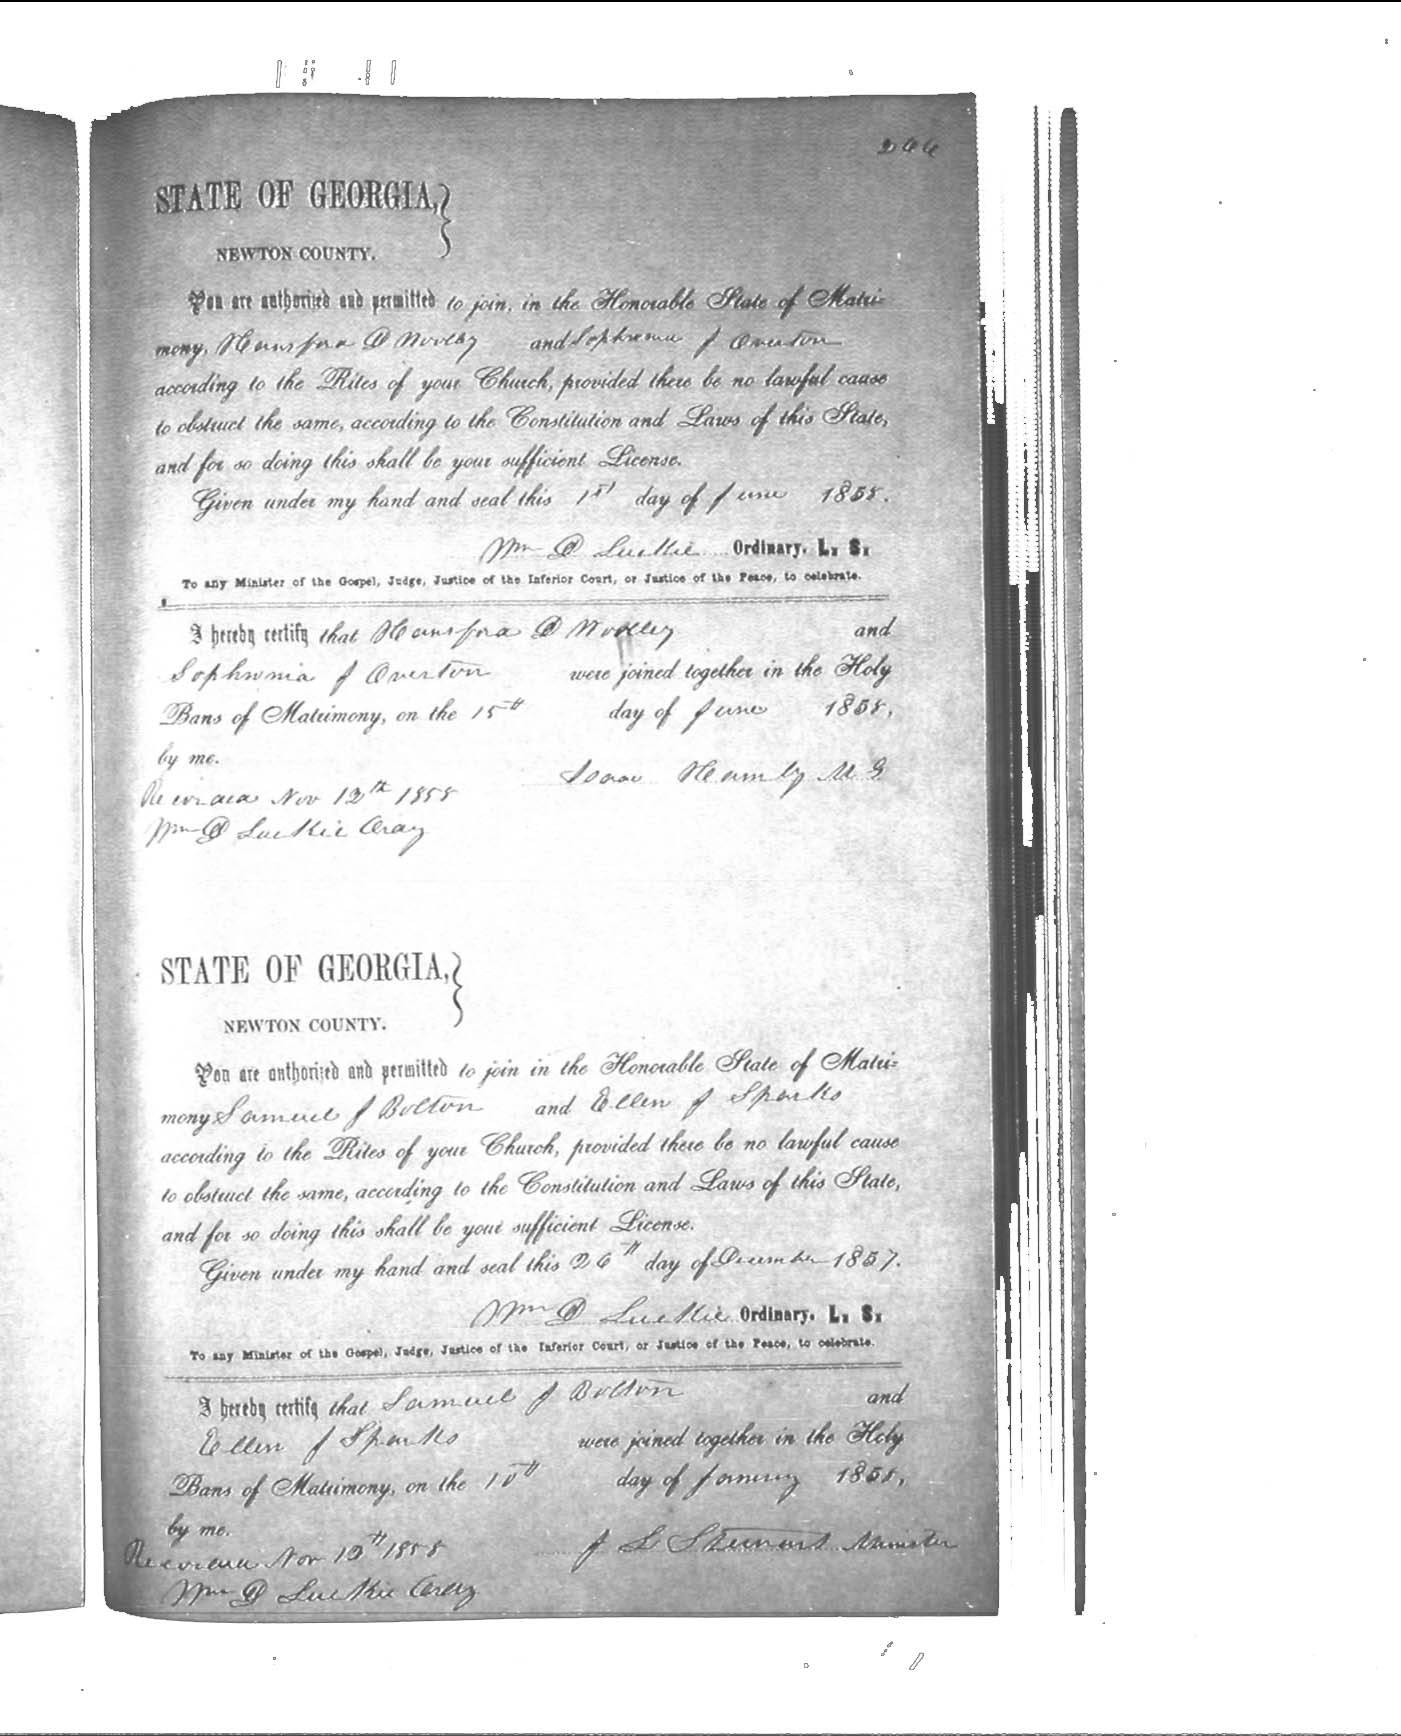 266
STATE OF GEORGIA,
NEWTON COUNTY.
You are authorized and permitted to join, in the Honorable State of Matri-
mony, Hansford D Woolley and Sophronia J Overton
according to the Rites of your Church, provided there be no lawful cause
to obstruct the same, according to the Constitution and Laws of this State,
and for so doing this shall be your sufficient License.
Given under my hand and seal this 1st day of June 1858.
Wm D Luckie Ordinary, L. S.
To any Minister of the Gospel, Judge, Justice of the Inferior Court, or Justice of the Peace, to celebrate.
I hereby certify that Hansford D Woolley and
Sophronia J Overton were joined together in the Holy
Bans of Matrimony, on the 15th day of June 1858,
by me.
Isaac Hamby M G
Recorded Nov 12th 1858
Wm D Luckie Ordy
STATE OF GEORGIA,
NEWTON COUNTY.
You are authorized and permitted to join in the Honorable State of Matri-
mony Samuel J Bolton and Ellen J Sparks
according to the Rites of your Church, provided there be no lawful cause
to obstruct the same, according to the Constitution and Laws of this State,
and for so doing this shall be your sufficient License.
Given under my hand and seal this 26th day of December 1857.
Wm D Luckie Ordinary, L. S.
To any Minister of the Gospel, Judge, Justice of the Inferior Court, or Justice of the Peace, to celebrate.
I hereby certify that Samuel J Bolton and
Ellen J Sparks were joined together in the Holy
Bans of Matrimony, on the 10th day of January 1858,
by me.
J L Stewart Minister
Recorded Nov 1858
Wm D Luckie Ordy